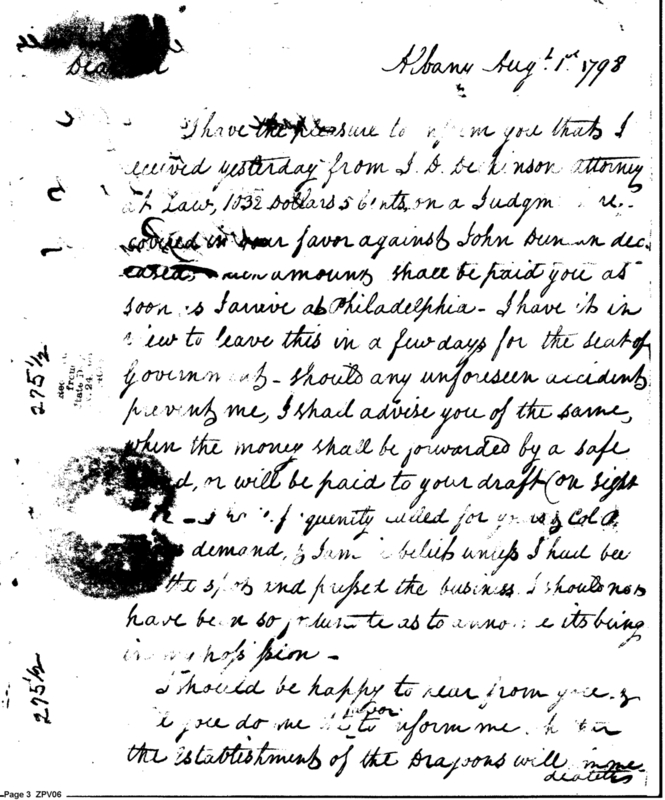 Dear Sir
Albany Augt. 1st 1798
I have the pleasure to inform you that I
received yesterday from J. D. Dickinson attorney
at Law, 1032 Dollars 5 Cents, on a Judgm re-
covered in your favor against John Duncan dec
eased, which amount shall be paid you as
soon as I arrive at Philadelphia - I have it in
view to leave this in a few days for the seat of
Government - should any unforeseen accident
prevent me, I shall advise you of the same,
when the money shall be forwarded by a safe
hand, or will be paid to your draft (on sight
- I have frequently called for yours & Col
demand, & I am in belief unless I had bee
the spot and pressed the business I should not
have been so fortunate as to announce its being
in my possession -
I should be happy to hear from you &
you do me favor to inform me whether
the Establishment of the Dragoons will imme
diately
275 1/2
275 1/2
Page 3 ZPV06